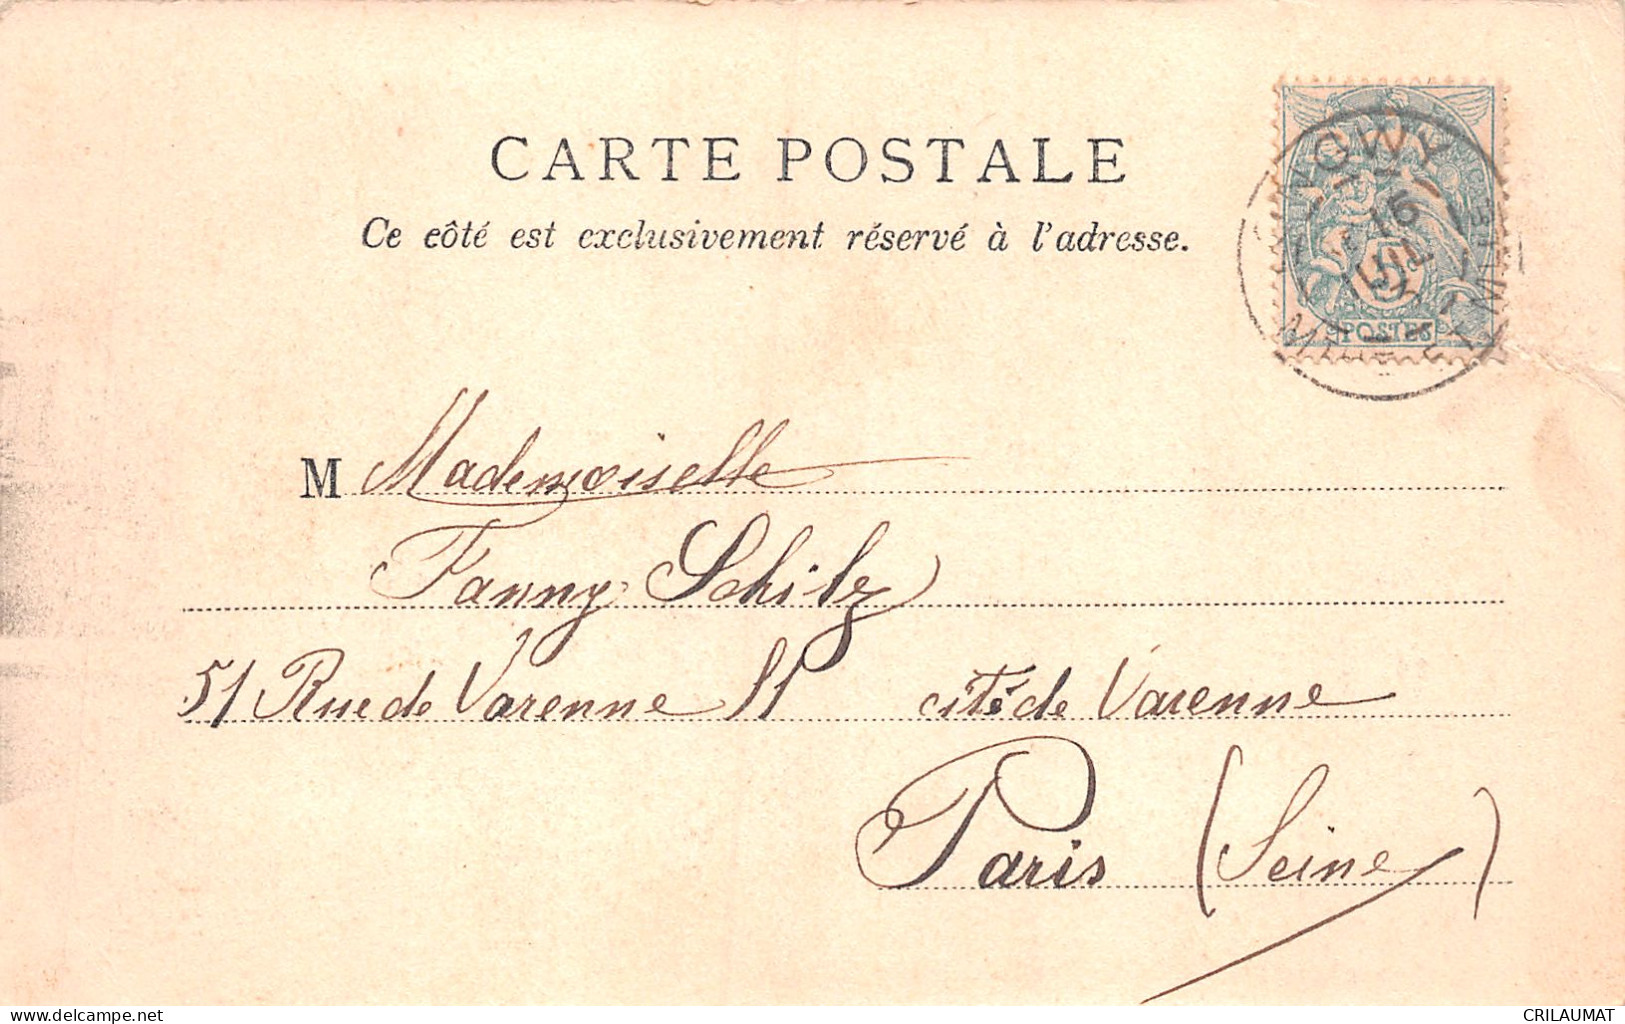 CARTE POSTALE
Ce côté est exclusivement réservé à l'adresse.
LONGWY
16
JUIL
5
POSTES
M Mademoiselle
Fanny Schilz
51 Rue de Varenne 51 cité de Varenne
Paris (Seine)
delcampe.net
CRILAUMAT